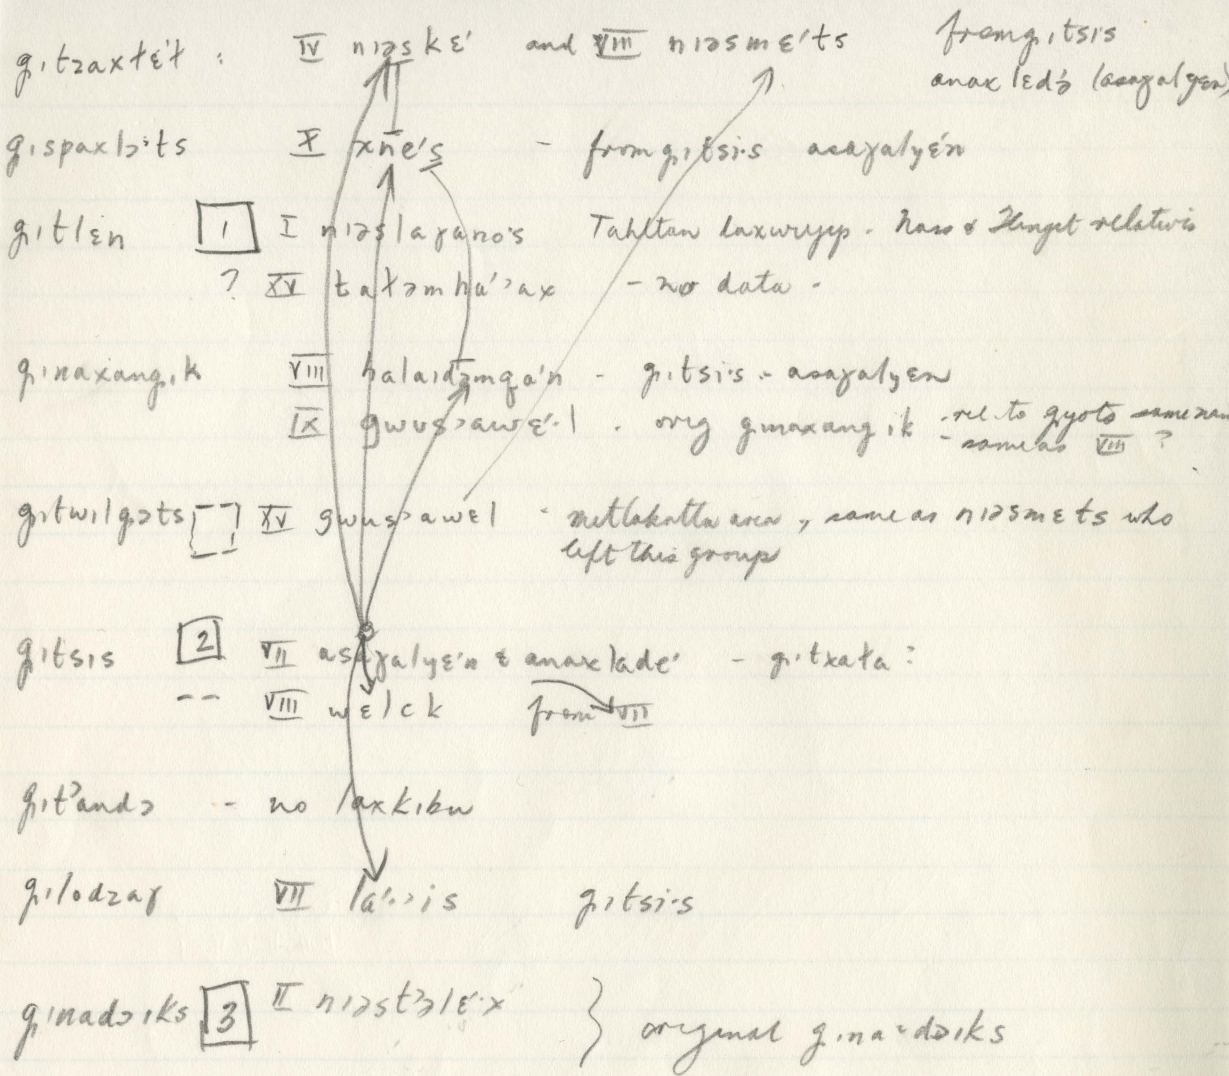 g.ıtzaxłɛ́ł : IV nıəskɛ' and VIII nıəsmɛ'ts from g.ıtsıs
anaxledɔ́ (asaɣalyɛn)
g.ıspaxlɔ·ts X xne's - from g.ıtsi·s asaɣalyɛ́n
g.ıtlɛn 1 I nıəslaɣano's Tahltan laxwıyıp - Nass & Tlinget relatives
? XV tałəmhá'ɔax - no data -
g.ınaxang.ık VIII halaıdəmqa'n - g.ıtsi·s - asaɣalyɛn
IX gwusɔawɛ'·l . orig g.ınaxang.ık - rel. to gyoto same nam
- same as VIII ?
g.ıtwılgɔts XV gwusɔawɛl - metlakatla area, same as nıəsmɛts who
left this group
g.ıtsıs 2 VII asaɣalyɛ'n & anaxlade' - g.ıtxała ?
-- VIII wɛlck from VII
g.ıt'andɔ - no laxkıbu
g.ılodzaɣ VII la'·ɔis g.ıtsi·s
g.ınadɔıks 3 II nıəst'ɔlɛ'·x } original g.ına·dɔıks